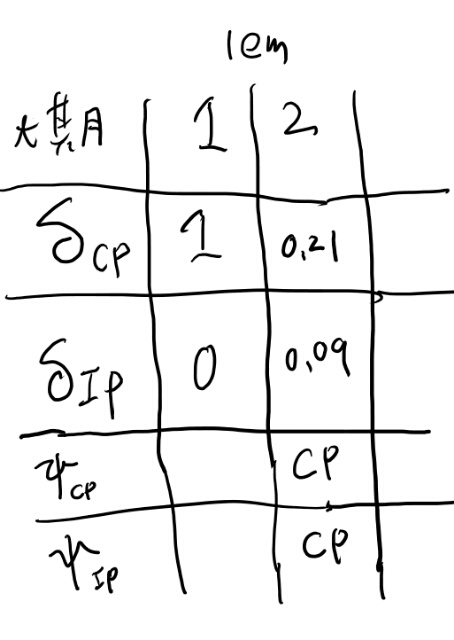 1em
大期 1 2
δCP 1 0,21
δIP 0 0,09
ψCP CP
ψIP CP